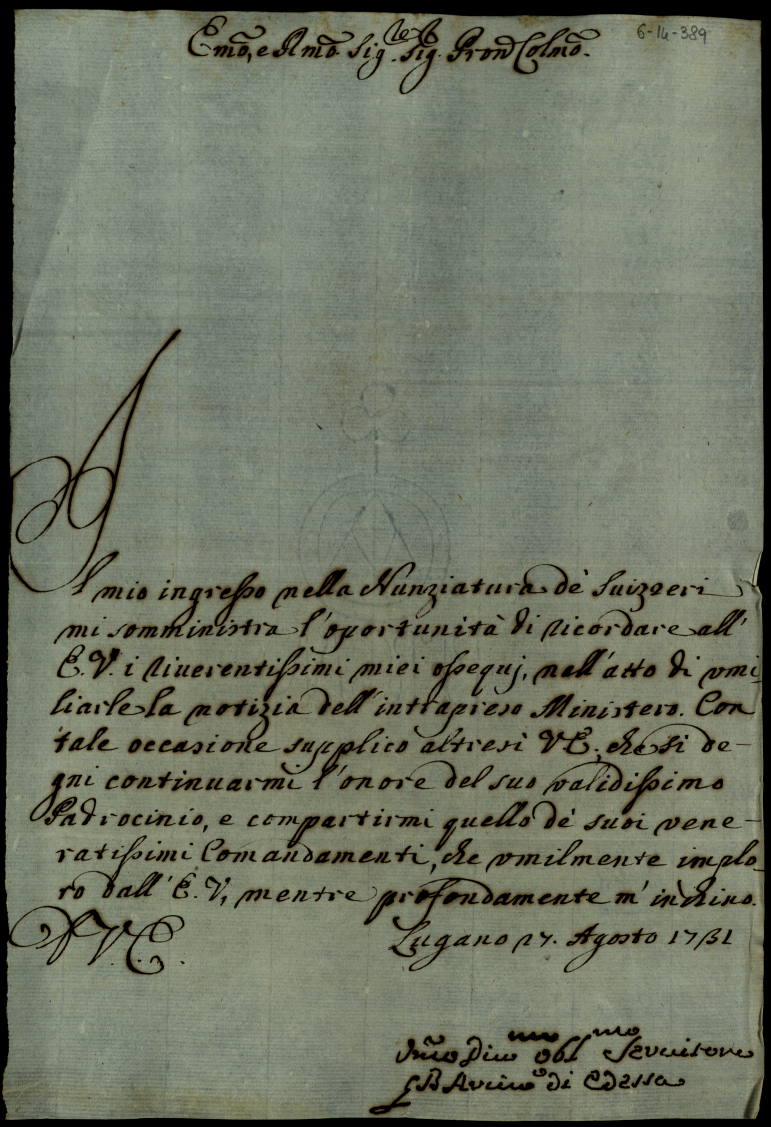 6-14-389
Emõ, e Rmõ Sig.re Sig. Pron Colmõ.
Al mio ingresso nella Nunziatura de' Suizzeri
mi somministra l'oportunità di ricordare all'
E. V. i riuerentissimi miei ossequj, nell'atto di vmi-
liarle la notizia dell'intrapreso Ministero. Con
tale occasione supplico altresì V E, che si de-
gni continuarmi l'onore del suo validissimo
Padrocinio, e compartirmi quello de' suoi vene-
ratissimi Comandamenti, che vmilmente implo-
ro dall' E. V, mentre profondamente m'inchino.
D V. E.
Lugano 27. Agosto 1731
Vmõ Diu mo obl mo Seruitore
GB Arciuo di Edessa